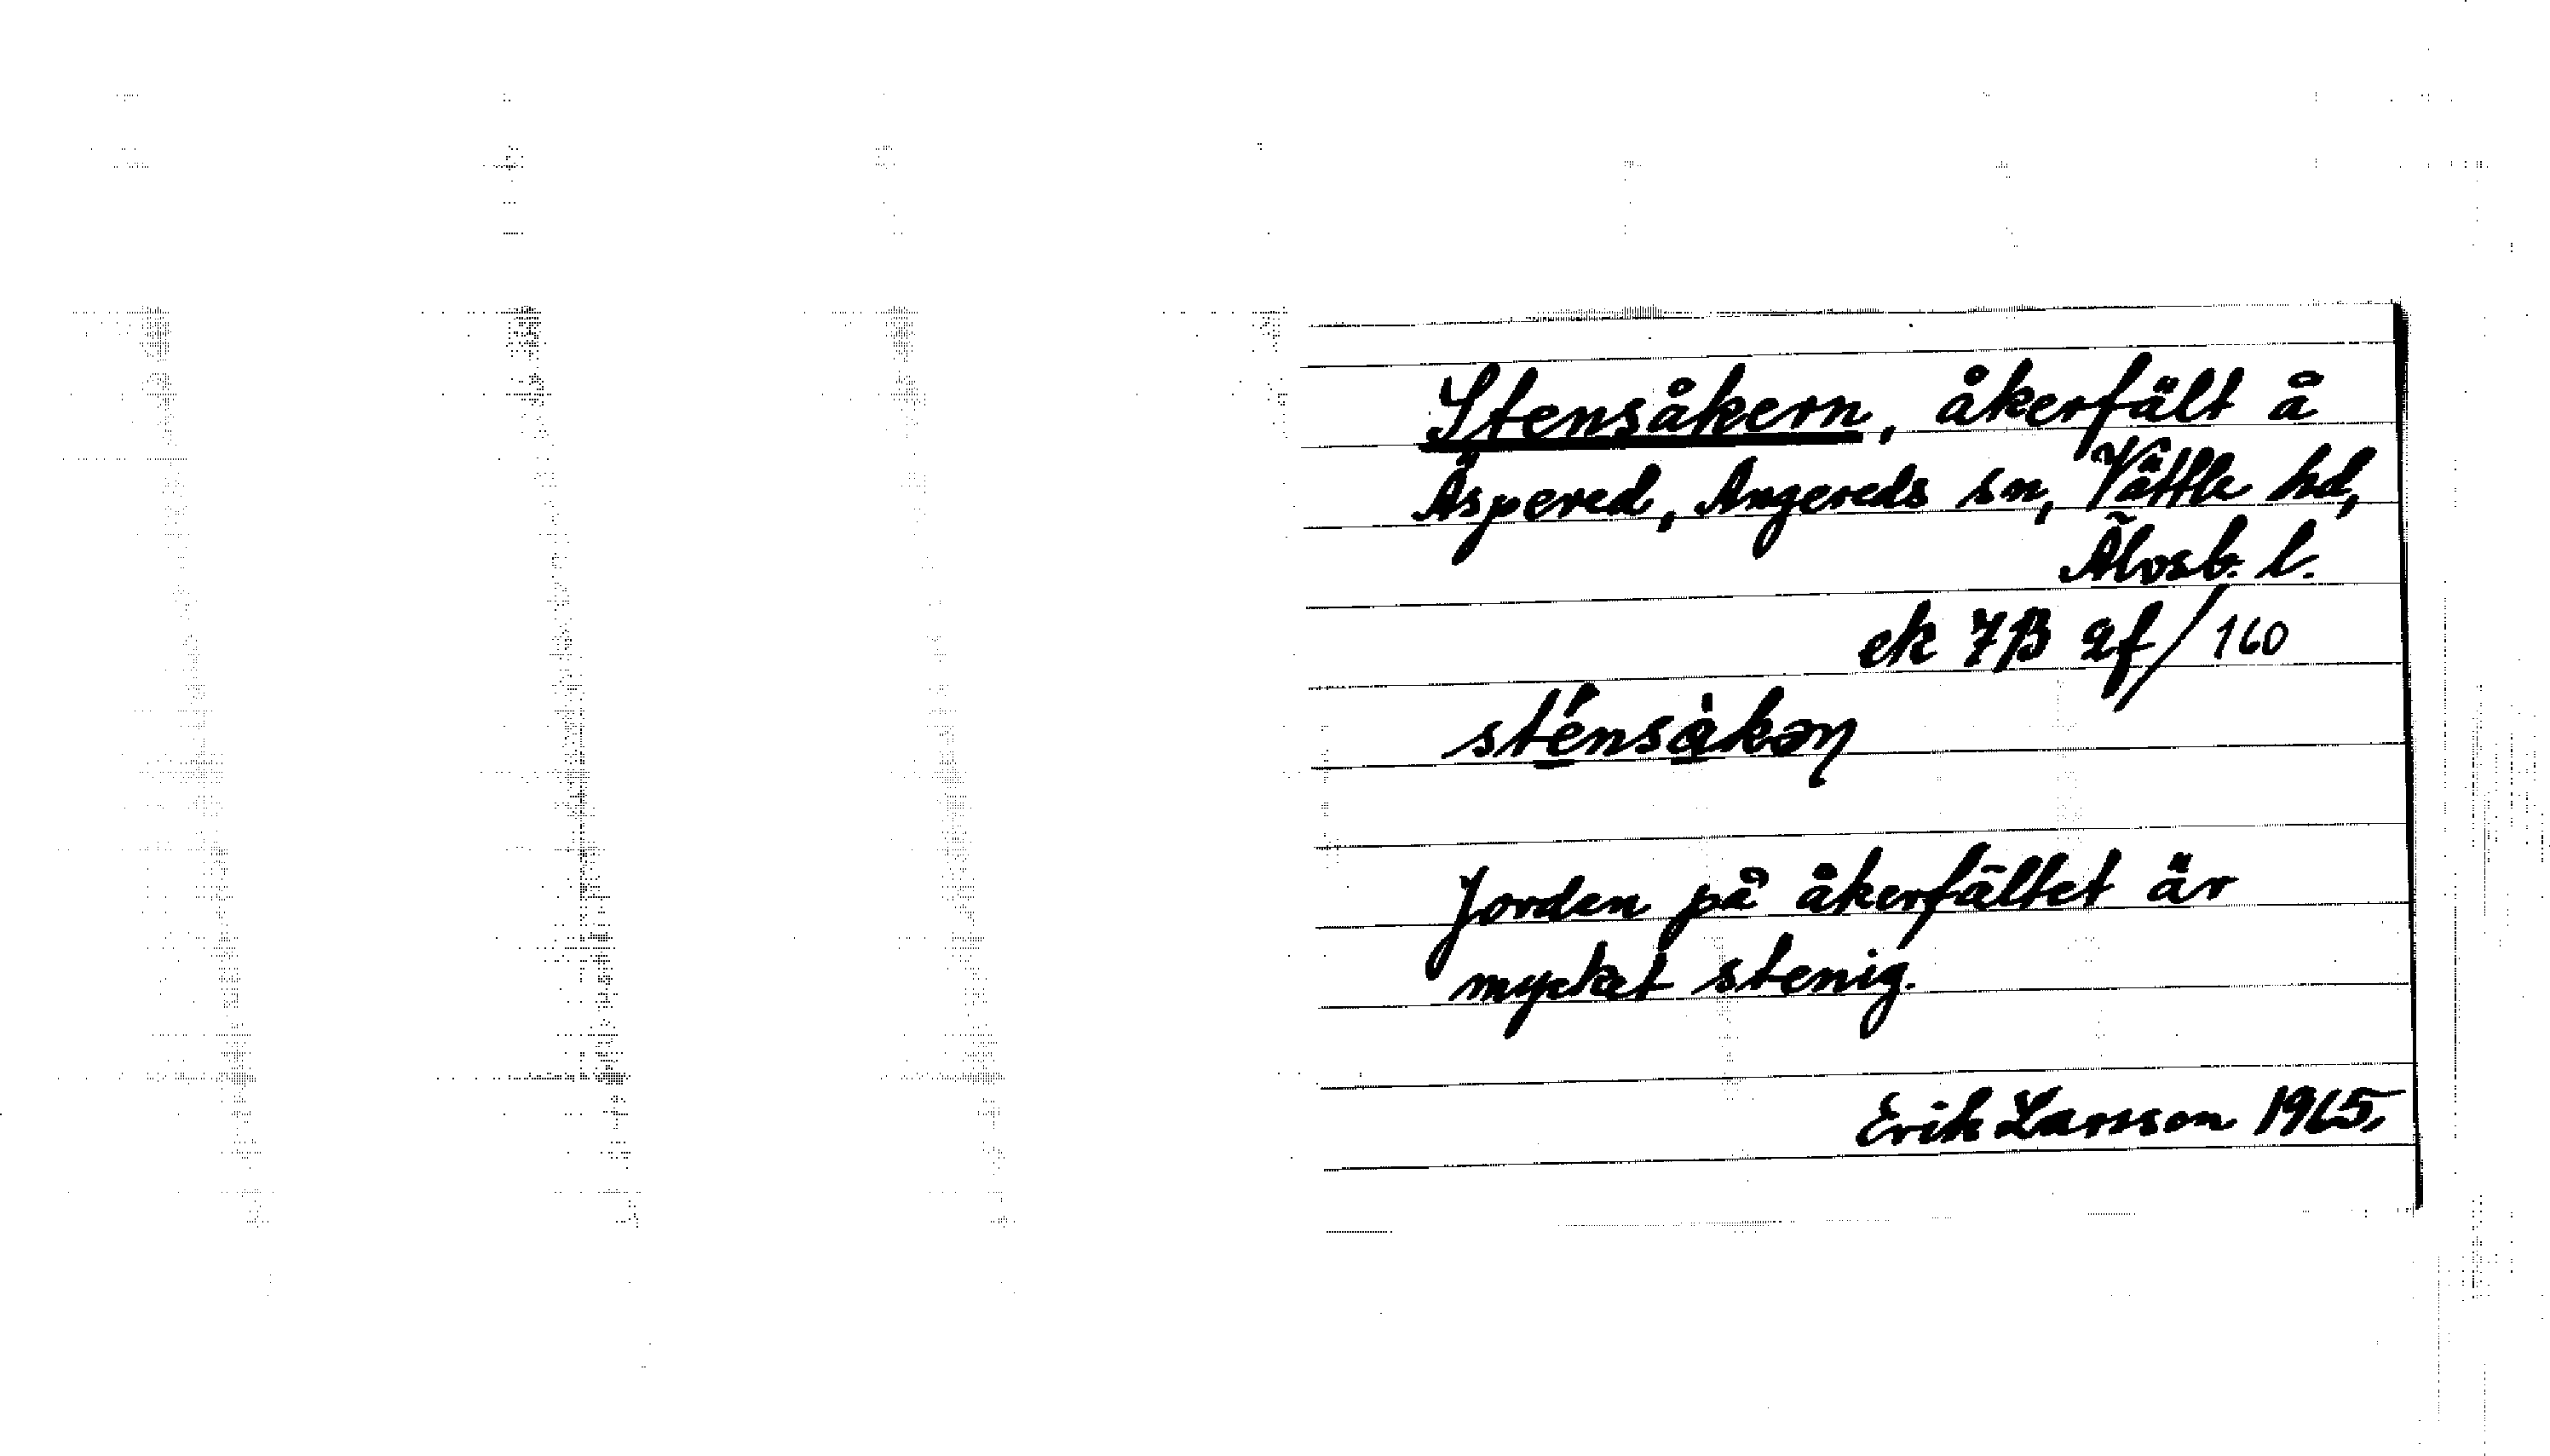 Stensåkern, åkerfält å
Äspered, Angereds sn, Vättle hd,
Älvsb. l.
ek 7B 2f/160
sténsàkəņ
Jorden på åkerfältet är
mycket stenig.
Erik Larsson 1965.